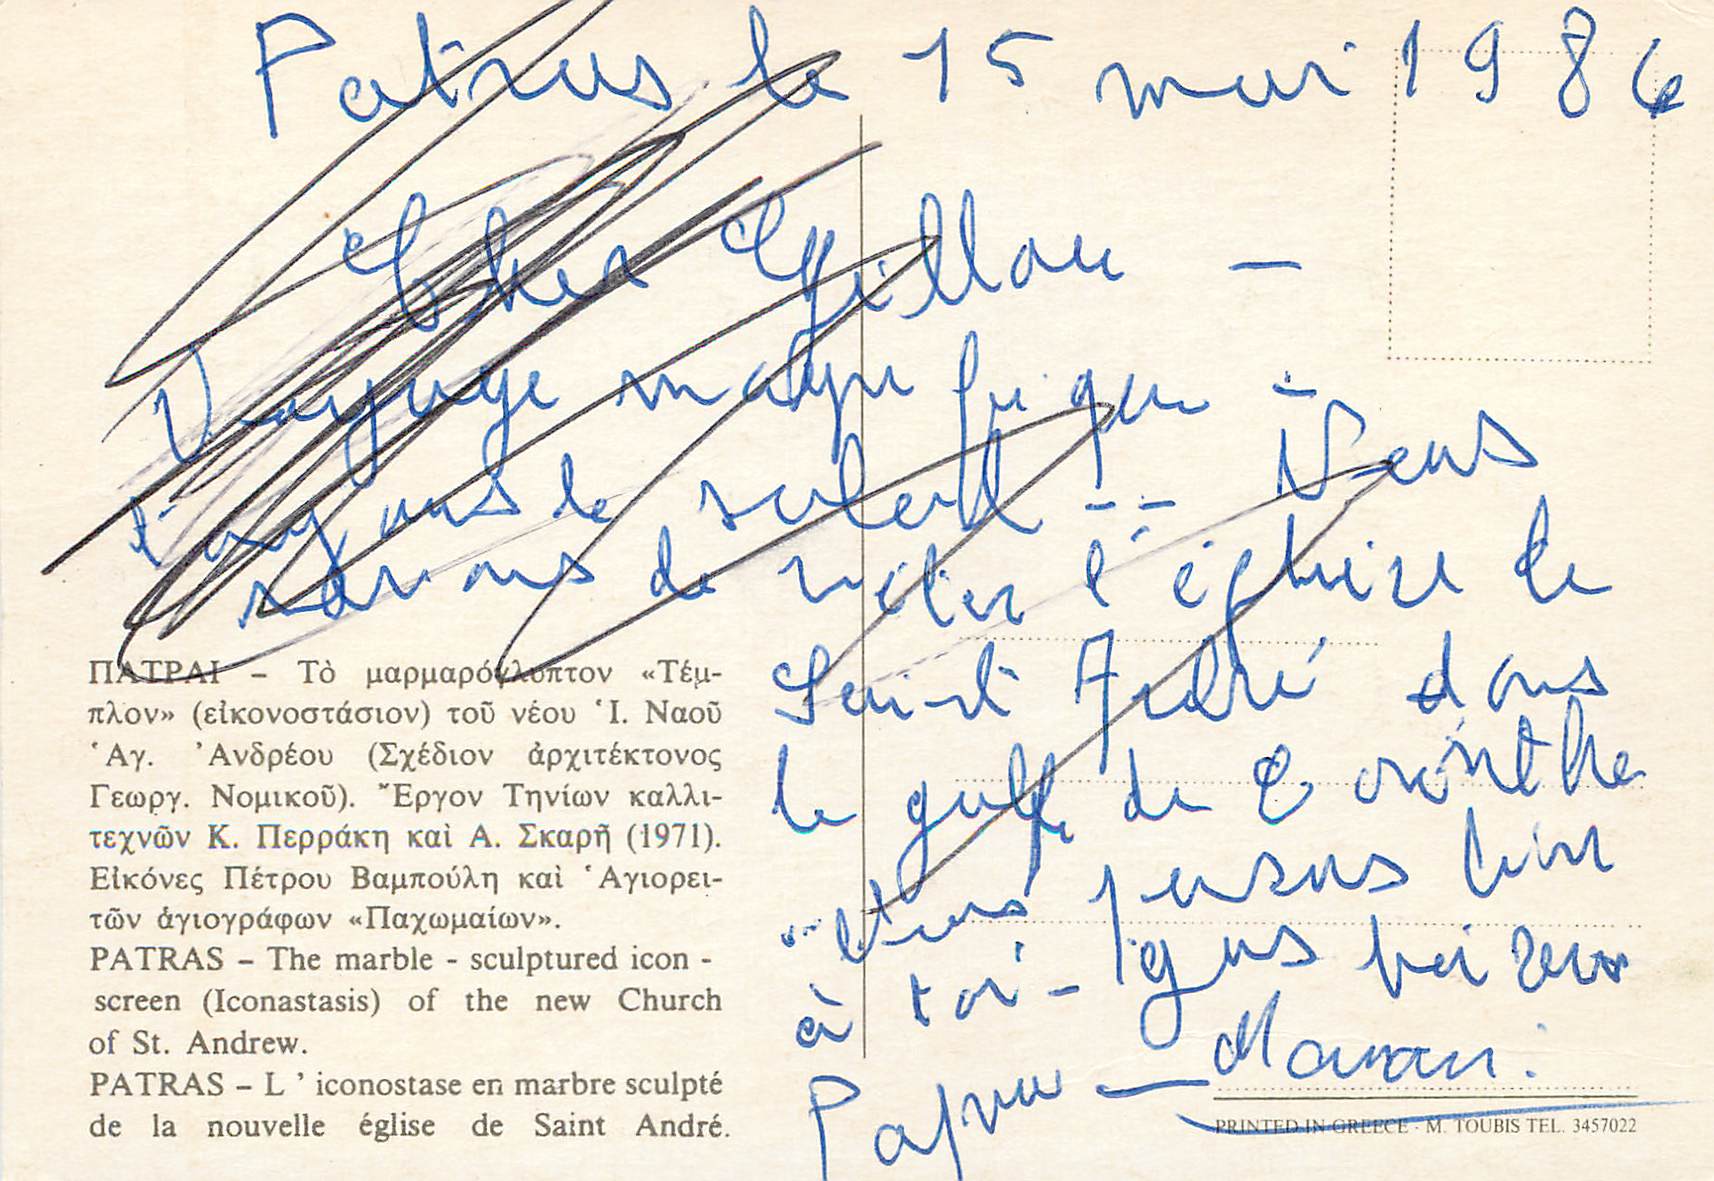 Patras le 15 mai 1986
Cher Gillou –
Voyage magnifique –
tayons le soleil -- Nous
venons de visiter l'église de
Saint André dans
le golfe de Corinthe
Nous pensons bien
à toi - gros baisers
Papa — Maman.
ΠΑΤΡΑΙ – Τὸ μαρμαρόγλυπτον «Τέμ-
πλον» (εἰκονοστάσιον) τοῦ νέου Ἱ. Ναοῦ
Ἁγ. Ἀνδρέου (Σχέδιον ἀρχιτέκτονος
Γεωργ. Νομικοῦ). Ἔργον Τηνίων καλλι-
τεχνῶν Κ. Περράκη καὶ Α. Σκαρῆ (1971).
Εἰκόνες Πέτρου Βαμπούλη καὶ Ἁγιορει-
τῶν ἁγιογράφων «Παχωμαίων».
PATRAS – The marble - sculptured icon -
screen (Iconastasis) of the new Church
of St. Andrew.
PATRAS – L ' iconostase en marbre sculpté
de la nouvelle église de Saint André.
PRINTED IN GREECE · M. TOUBIS TEL. 3457022